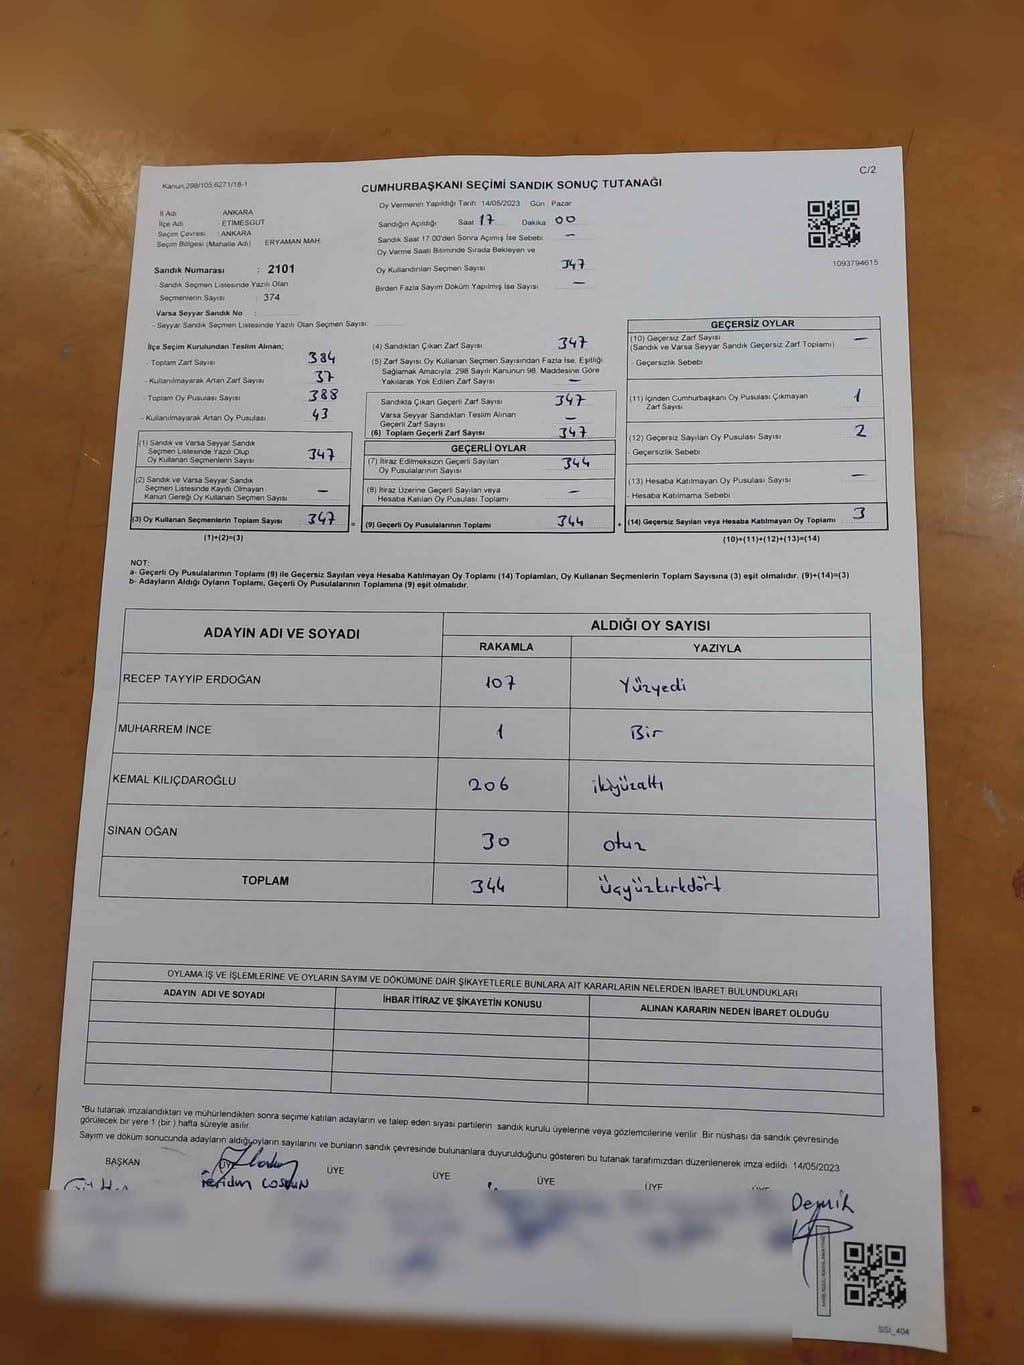 C/2
Kanun,298/105;6271/18-1
CUMHURBAŞKANI SEÇİMİ SANDIK SONUÇ TUTANAĞI
İl Adı : ANKARA
İlçe Adı : ETİMESGUT
Seçim Çevresi : ANKARA
Seçim Bölgesi (Mahalle Adı) ERYAMAN MAH.
Sandık Numarası : 2101
- Sandık Seçmen Listesinde Yazılı Olan
Seçmenlerin Sayısı : 374
Varsa Seyyar Sandık No :
- Seyyar Sandık Seçmen Listesinde Yazılı Olan Seçmen Sayısı:
Oy Vermenin Yapıldığı Tarih 14/05/2023 Gün Pazar
Sandığın Açıldığı Saat 17 Dakika 00
Sandık Saat 17:00'den Sonra Açımış İse Sebebi —
Oy Verme Saati Bitiminde Sırada Bekleyen ve
Oy Kullandırılan Seçmen Sayısı 347
Birden Fazla Sayım Döküm Yapılmış İse Sayısı —
1093794615
İlçe Seçim Kurulundan Teslim Alınan;
- Toplam Zarf Sayısı 384
- Kullanılmayarak Artan Zarf Sayısı 37
- Toplam Oy Pusulası Sayısı 388
- Kullanılmayarak Artan Oy Pusulası 43
(1) Sandık ve Varsa Seyyar Sandık
Seçmen Listesinde Yazılı Olup
Oy Kullanan Seçmenlerin Sayısı 347
(2) Sandık ve Varsa Seyyar Sandık
Seçmen Listesinde Kayıtlı Olmayan
Kanun Gereği Oy Kullanan Seçmen Sayısı —
(3) Oy Kullanan Seçmenlerin Toplam Sayısı 347 =
(1)+(2)=(3)
(4) Sandıktan Çıkan Zarf Sayısı 347
(5) Zarf Sayısı Oy Kullanan Seçmen Sayısından Fazla İse, Eşitliği
Sağlamak Amacıyla; 298 Sayılı Kanunun 98. Maddesine Göre
Yakılarak Yok Edilen Zarf Sayısı —
Sandıkta Çıkan Geçerli Zarf Sayısı 347
Varsa Seyyar Sandıktan Teslim Alınan
Geçerli Zarf Sayısı —
(6) Toplam Geçerli Zarf Sayısı 347
GEÇERLİ OYLAR
(7) İtiraz Edilmeksizin Geçerli Sayılan
Oy Pusulalarının Sayısı 344
(8) İtiraz Üzerine Geçerli Sayılan veya
Hesaba Katılan Oy Pusulası Toplamı —
(9) Geçerli Oy Pusulalarının Toplamı 344 +
GEÇERSİZ OYLAR
(10) Geçersiz Zarf Sayısı —
(Sandık ve Varsa Seyyar Sandık Geçersiz Zarf Toplamı)
- Geçersizlik Sebebi
(11) İçinden Cumhurbaşkanı Oy Pusulası Çıkmayan
Zarf Sayısı 1
(12) Geçersiz Sayılan Oy Pusulası Sayısı 2
- Geçersizlik Sebebi
(13) Hesaba Katılmayan Oy Pusulası Sayısı —
- Hesaba Katılmama Sebebi
(14) Geçersiz Sayılan veya Hesaba Katılmayan Oy Toplamı 3
(10)+(11)+(12)+(13)=(14)
NOT:
a- Geçerli Oy Pusulalarının Toplamı (9) ile Geçersiz Sayılan veya Hesaba Katılmayan Oy Toplamı (14) Toplamları, Oy Kullanan Seçmenlerin Toplam Sayısına (3) eşit olmalıdır. (9)+(14)=(3)
b- Adayların Aldığı Oyların Toplamı, Geçerli Oy Pusulalarının Toplamına (9) eşit olmalıdır.
ADAYIN ADI VE SOYADI
ALDIĞI OY SAYISI
RAKAMLA YAZIYLA
RECEP TAYYİP ERDOĞAN 107 Yüzyedi
MUHARREM İNCE 1 Bir
KEMAL KILIÇDAROĞLU 206 ikiyüzaltı
SİNAN OĞAN 30 otuz
TOPLAM 344 Üçyüzkırkdört
OYLAMA İŞ VE İŞLEMLERİNE VE OYLARIN SAYIM VE DÖKÜMÜNE DAİR ŞİKAYETLERLE BUNLARA AİT KARARLARIN NELERDEN İBARET BULUNDUKLARI
ADAYIN ADI VE SOYADI İHBAR İTİRAZ VE ŞİKAYETİN KONUSU ALINAN KARARIN NEDEN İBARET OLDUĞU
"Bu tutanak imzalandıktan ve mühürlendikten sonra seçime katılan adayların ve talep eden siyasi partilerin sandık kurulu üyelerine veya gözlemcilerine verilir. Bir nüshası da sandık çevresinde
görülecek bir yere 1 (bir) hafta süreyle asılır.
Sayım ve döküm sonucunda adayların aldığı oyların sayılarını ve bunların sandık çevresinde bulunanlara duyurulduğunu gösteren bu tutanak tarafımızdan düzenlenerek imza edildi. 14/05/2023
BAŞKAN ÜYE ÜYE ÜYE ÜYE ÜYE
SSI_404